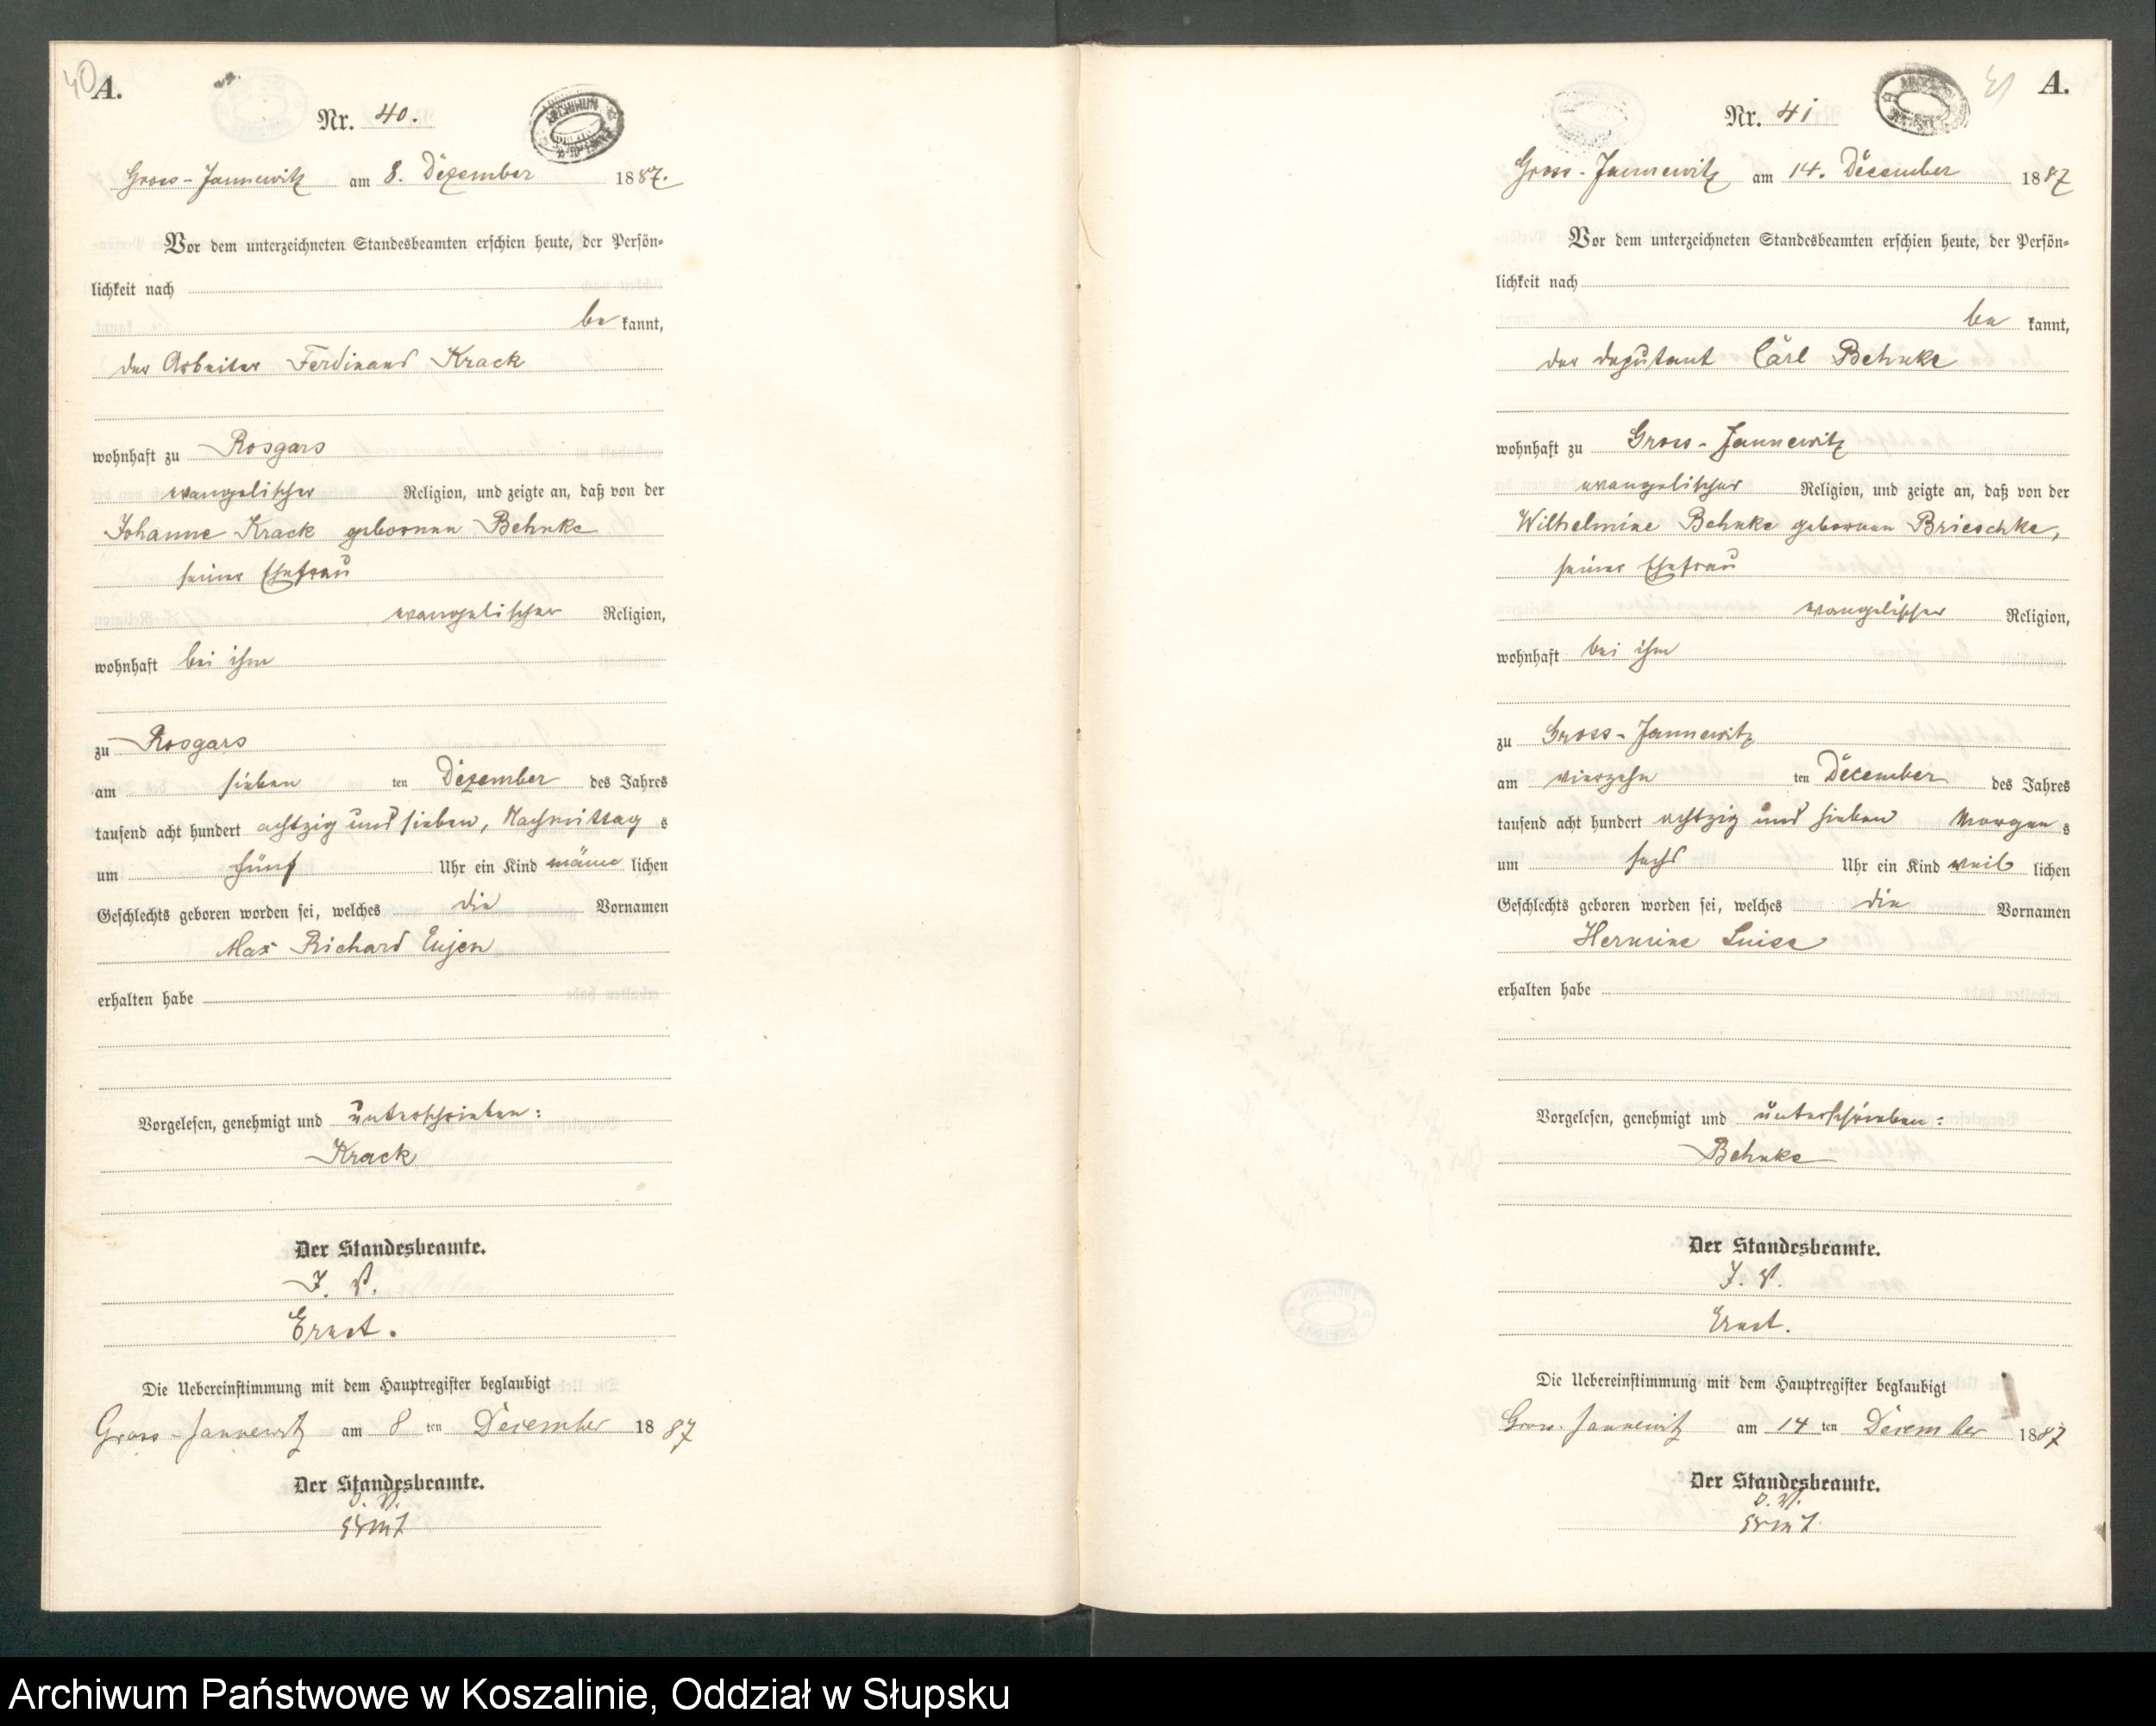 40
A.
Nr. 40.
Gross-Jannewitz am 8. Dezember 1887.
Vor dem unterzeichneten Standesbeamten erschien heute, der Persön=
lichkeit nach
be kannt,
der Arbeiter Ferdinand Krack
wohnhaft zu Rosgars
evangelischer Religion, und zeigte an, daß von der
Johanne Krack geborenen Behnke
seiner Ehefrau
evangelischer Religion,
wohnhaft bei ihm
zu Rosgars
am sieben ten Dezember des Jahres
tausend acht hundert achtzig und sieben, Nachmittag s
um fünf Uhr ein Kind männ lichen
Geschlechts geboren worden sei, welches die Vornamen
Max Richard Eujen
erhalten habe
Vorgelesen, genehmigt und unterschrieben:
Krack
Der Standesbeamte.
J. V.
Ernst.
Die Uebereinstimmung mit dem Hauptregister beglaubigt
Gross-Jannewitz am 8 ten Dezember 1887
Der Standesbeamte.
J. V.
Ernst
41
A.
Nr. 41
Gross-Jannewitz am 14. December 1887
Vor dem unterzeichneten Standesbeamten erschien heute, der Persön=
lichkeit nach
be kannt,
der Deputant Carl Behnke
wohnhaft zu Gross-Jannewitz
evangelischer Religion, und zeigte an, daß von der
Wilhelmine Behnke geborenen Brieschke,
seiner Ehefrau
evangelischer Religion,
wohnhaft bei ihm
zu Gross-Jannewitz
am vierzehn ten December des Jahres
tausend acht hundert achtzig und sieben Morgen s
um sechs Uhr ein Kind weib lichen
Geschlechts geboren worden sei, welches die Vornamen
Hermine Luise
erhalten habe
Vorgelesen, genehmigt und unterschrieben:
Behnke
Der Standesbeamte.
J. V.
Ernst.
Die Uebereinstimmung mit dem Hauptregister beglaubigt
Gross-Jannewitz am 14 ten Dezember 1887
Der Standesbeamte.
J. V.
Ernst
Archiwum Państwowe w Koszalinie, Oddział w Słupsku